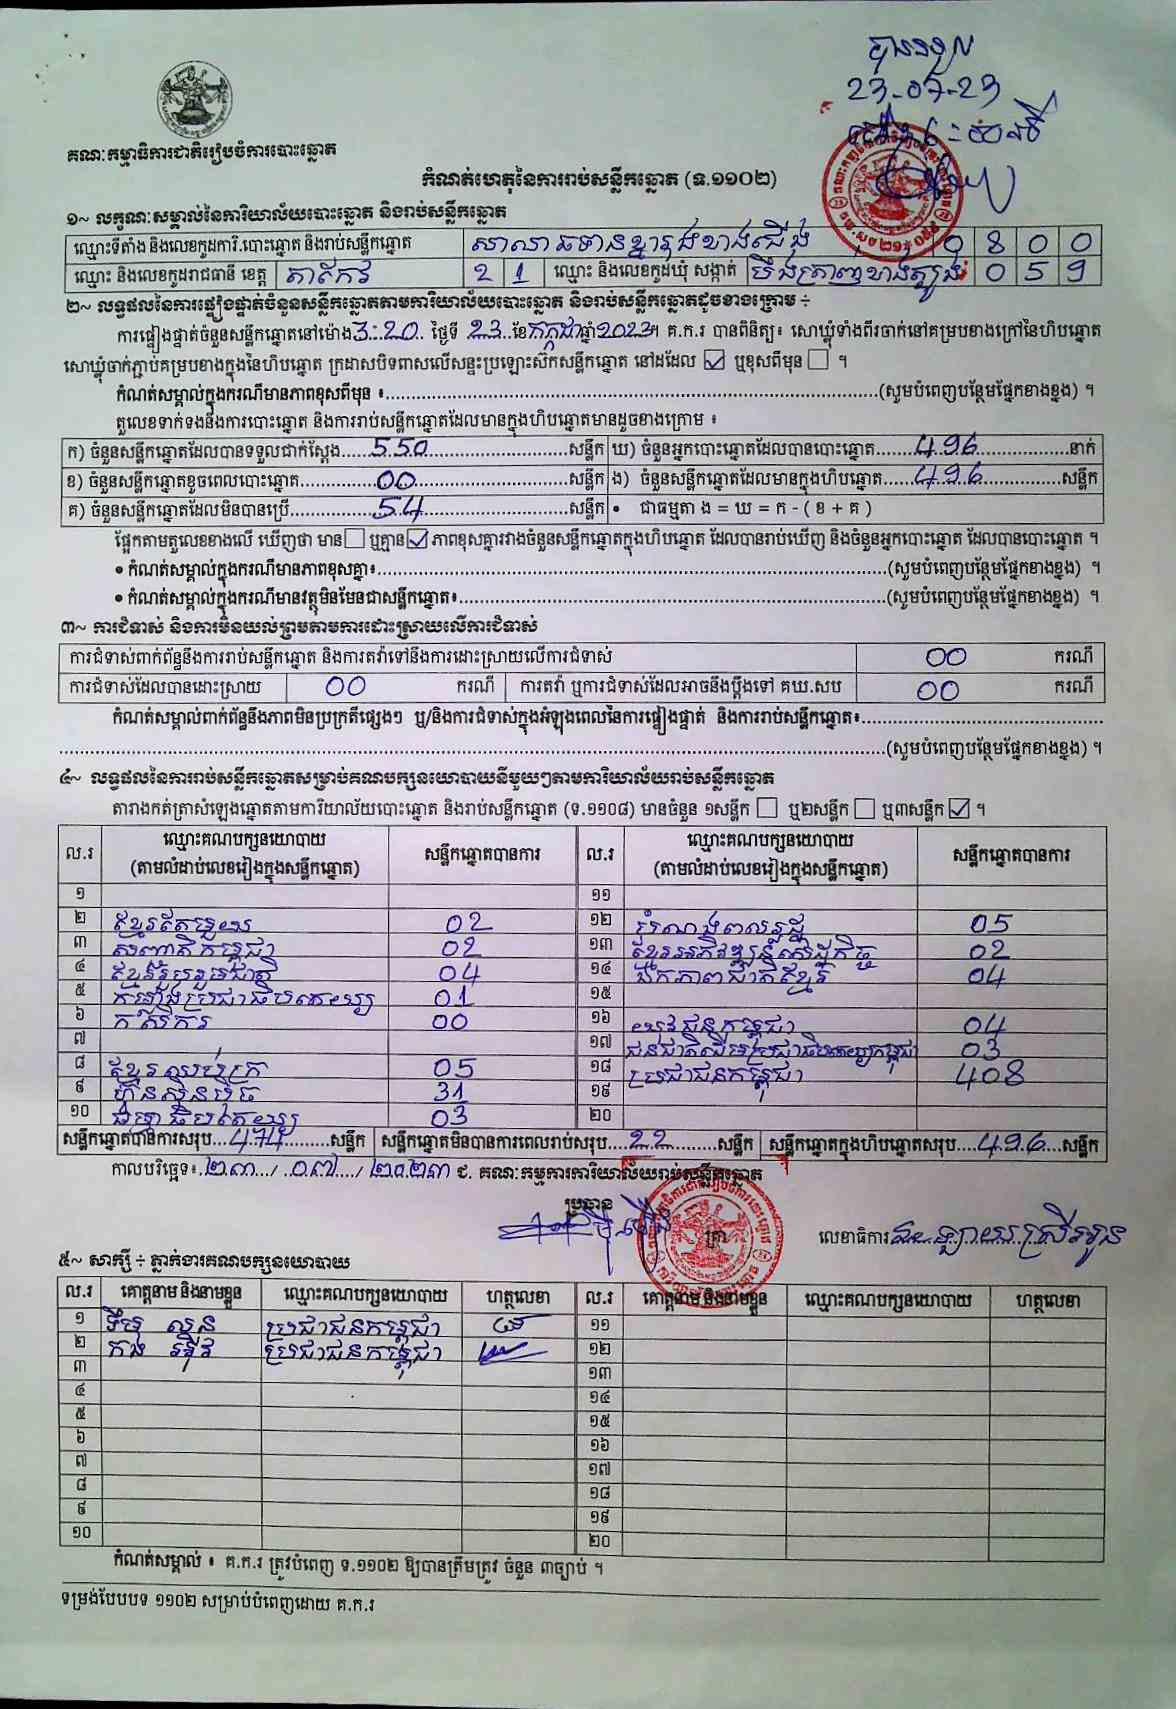 បានទទួល
23-07-23
គណៈកម្មាធិការជាតិរៀបចំការបោះឆ្នោត
កំណត់ហេតុនៃការរាប់សន្លឹកឆ្នោត (ទ.១១០២)
១~ លក្ខណៈសម្គាល់នៃការិយាល័យបោះឆ្នោត និងរាប់សន្លឹកឆ្នោត
ឈ្មោះទីតាំង និងលេខកូដការិ.បោះឆ្នោត និងរាប់សន្លឹកឆ្នោត សាលាឆទាន 0 8 0 0
ឈ្មោះ និងលេខកូដរាជធានី ខេត្ត តាកែវ 2 1 ឈ្មោះ និងលេខកូដឃុំ សង្កាត់ បឹងត្រាញ់ខាងត្បូង 0 5 9
២~ លទ្ធផលនៃការផ្ទៀងផ្ទាត់ចំនួនសន្លឹកឆ្នោតតាមការិយាល័យបោះឆ្នោត និងរាប់សន្លឹកឆ្នោតដូចខាងក្រោម ÷
ការផ្ទៀងផ្ទាត់ចំនួនសន្លឹកឆ្នោតនៅម៉ោង 3:20 ថ្ងៃទី 23 ខែ កក្កដា ឆ្នាំ 2023។ គ.ក.រ បានពិនិត្យ៖ សោឃ្លុំទាំងពីរចាក់នៅគម្របខាងក្រៅនៃហិបឆ្នោត
សោឃ្លុំចាក់ភ្ជាប់គម្របខាងក្នុងនៃហិបឆ្នោត ក្រដាសបិទពាសលើសន្ទះប្រឡោះស៊កសន្លឹកឆ្នោត នៅដដែល ☑ ឬខុសពីមុន ☐ ។
កំណត់សម្គាល់ក្នុងករណីមានភាពខុសពីមុន ៖ (សូមបំពេញបន្ថែមផ្នែកខាងខ្នង) ។
តួលេខទាក់ទងនឹងការបោះឆ្នោត និងការរាប់សន្លឹកឆ្នោតដែលមានក្នុងហិបឆ្នោតមានដូចខាងក្រោម ៖
ក) ចំនួនសន្លឹកឆ្នោតដែលបានទទួលជាក់ស្តែង 550 សន្លឹក ឃ) ចំនួនអ្នកបោះឆ្នោតដែលបានបោះឆ្នោត 496 នាក់
ខ) ចំនួនសន្លឹកឆ្នោតខូចពេលបោះឆ្នោត 00 សន្លឹក ង) ចំនួនសន្លឹកឆ្នោតដែលមានក្នុងហិបឆ្នោត 496 សន្លឹក
គ) ចំនួនសន្លឹកឆ្នោតដែលមិនបានប្រើ 54 សន្លឹក • ជាធម្មតា ង = ឃ = ក - ( ខ + គ )
ផ្អែកតាមតួលេខខាងលើ ឃើញថា មាន ☐ ឬគ្មាន ☑ ភាពខុសគ្នារវាងចំនួនសន្លឹកឆ្នោតក្នុងហិបឆ្នោត ដែលបានរាប់ឃើញ និងចំនួនអ្នកបោះឆ្នោត ដែលបានបោះឆ្នោត ។
• កំណត់សម្គាល់ក្នុងករណីមានភាពខុសគ្នា៖ (សូមបំពេញបន្ថែមផ្នែកខាងខ្នង) ។
• កំណត់សម្គាល់ក្នុងករណីមានវត្ថុមិនមែនជាសន្លឹកឆ្នោត៖ (សូមបំពេញបន្ថែមផ្នែកខាងខ្នង) ។
៣~ ការជំទាស់ និងការមិនយល់ព្រមតាមការដោះស្រាយលើការជំទាស់
ការជំទាស់ពាក់ព័ន្ធនឹងការរាប់សន្លឹកឆ្នោត និងការតវ៉ាទៅនឹងការដោះស្រាយលើការជំទាស់ 00 ករណី
ការជំទាស់ដែលបានដោះស្រាយ 00 ករណី ការតវ៉ា ឬការជំទាស់ដែលអាចនឹងប្តឹងទៅ គឃ.សប 00 ករណី
កំណត់សម្គាល់ពាក់ព័ន្ធនឹងភាពមិនប្រក្រតីផ្សេងៗ ឬ/និងការជំទាស់ក្នុងអំឡុងពេលនៃការផ្ទៀងផ្ទាត់ និងការរាប់សន្លឹកឆ្នោត៖
(សូមបំពេញបន្ថែមផ្នែកខាងខ្នង) ។
៤~ លទ្ធផលនៃការរាប់សន្លឹកឆ្នោតសម្រាប់គណបក្សនយោបាយនីមួយៗតាមការិយាល័យរាប់សន្លឹកឆ្នោត
តារាងកត់ត្រាសំឡេងឆ្នោតតាមការិយាល័យបោះឆ្នោត និងរាប់សន្លឹកឆ្នោត (ទ.១១០៨) មានចំនួន ១សន្លឹក ☐ ឬ២សន្លឹក ☐ ឬ៣សន្លឹក ☑ ។
ល.រ ឈ្មោះគណបក្សនយោបាយ (តាមលំដាប់លេខរៀងក្នុងសន្លឹកឆ្នោត) សន្លឹកឆ្នោតបានការ ល.រ ឈ្មោះគណបក្សនយោបាយ (តាមលំដាប់លេខរៀងក្នុងសន្លឹកឆ្នោត) សន្លឹកឆ្នោតបានការ
១ ១១
២ ខ្មែរតែមួយ 02 ១២ បំណងពលរដ្ឋ 05
៣ សញ្ជាតិកម្ពុជា 02 ១៣ ខ្មែរអភិវឌ្ឍន៍សេដ្ឋកិច្ច 02
៤ ខ្មែររួបរួមជាតិ 04 ១៤ ឯកភាពជាតិខ្មែរ 04
៥ កម្លាំងប្រជាធិបតេយ្យ 01 ១៥
៦ កសិករ 00 ១៦ យុវជនកម្ពុជា 04
៧ ១៧ ជនជាតិដើមប្រជាធិបតេយ្យកម្ពុជា 03
៨ ខ្មែរឈប់ក្រ 05 ១៨ ប្រជាជនកម្ពុជា 408
៩ ហ៊្វុនស៊ិនប៉ិច 31 ១៩
១០ ធម្មាធិបតេយ្យ 03 ២០
សន្លឹកឆ្នោតបានការសរុប 474 សន្លឹក សន្លឹកឆ្នោតមិនបានការពេលរាប់សរុប 22 សន្លឹក សន្លឹកឆ្នោតក្នុងហិបឆ្នោតសរុប 496 សន្លឹក
កាលបរិច្ឆេទ៖ ២៣ / ០៧ / ២០២៣ ជ. គណៈកម្មការការិយាល័យរាប់សន្លឹកឆ្នោត
ប្រធាន
ត្រា
លេខាធិការ
៥~ សាក្សី ÷ ភ្នាក់ងារគណបក្សនយោបាយ
ល.រ គោត្តនាម និងនាមខ្លួន ឈ្មោះគណបក្សនយោបាយ ហត្ថលេខា ល.រ គោត្តនាម និងនាមខ្លួន ឈ្មោះគណបក្សនយោបាយ ហត្ថលេខា
១ ទឹម សួន ប្រជាជនកម្ពុជា ១១
២ កង ប្រជាជនកម្ពុជា ១២
៣ ១៣
៤ ១៤
៥ ១៥
៦ ១៦
៧ ១៧
៨ ១៨
៩ ១៩
១០ ២០
កំណត់សម្គាល់ ៖ គ.ក.រ ត្រូវបំពេញ ទ.១១០២ ឱ្យបានត្រឹមត្រូវ ចំនួន ៣ច្បាប់ ។
ទម្រង់បែបបទ ១១០២ សម្រាប់បំពេញដោយ គ.ក.រ